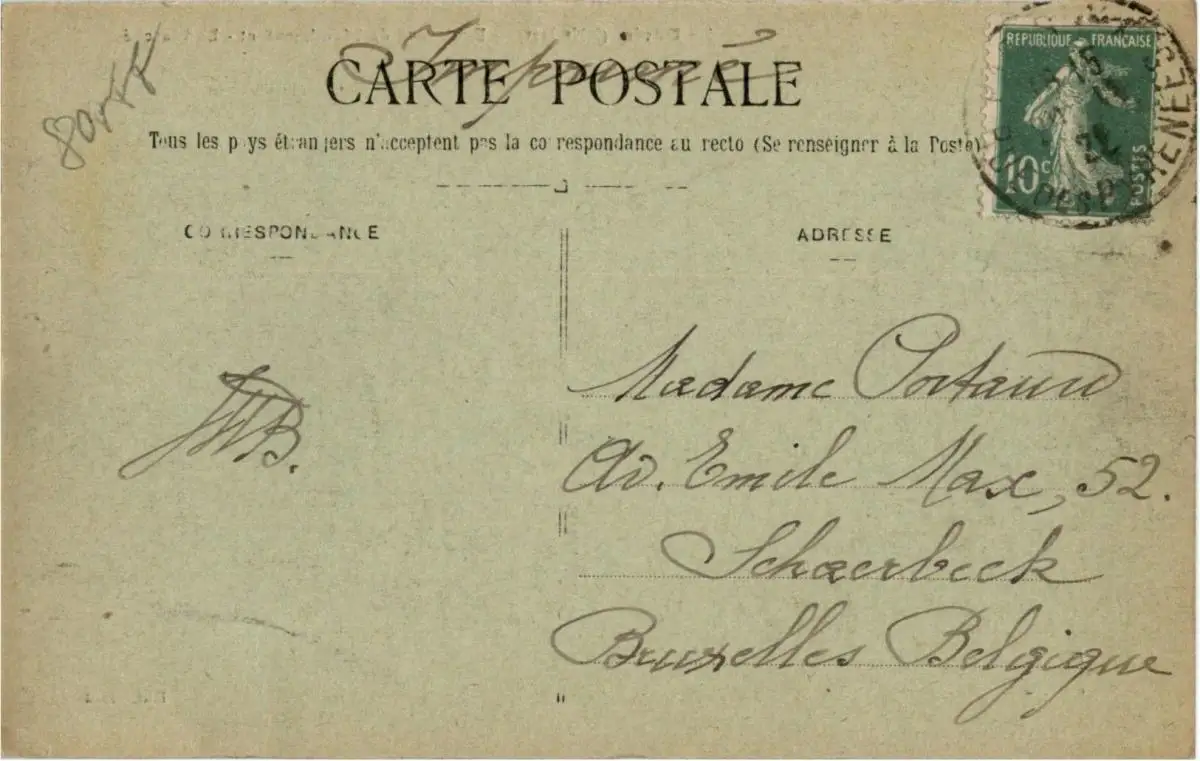 Imprimé
CARTE POSTALE
Tous les pays étrangers n'acceptent pas la correspondance au recto (Se renseigner à la Poste)
CORRESPONDANCE
ADRESSE
RÉPUBLIQUE FRANÇAISE
10c
POSTES
15
22
Madame
Av. Emile Max, 52.
Schaerbeek
Bruxelles Belgique